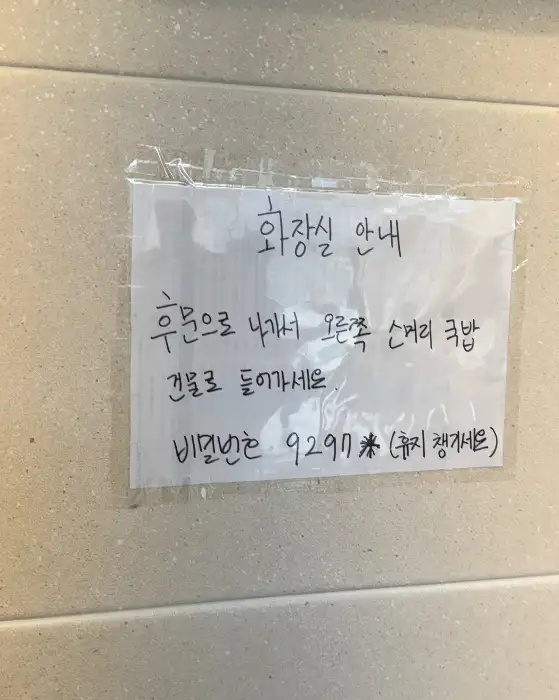 화장실 안내
후문으로 나가서 오른쪽 소머리 국밥
건물로 들어가세요.
비밀번호 9297* (휴지 챙기세요)